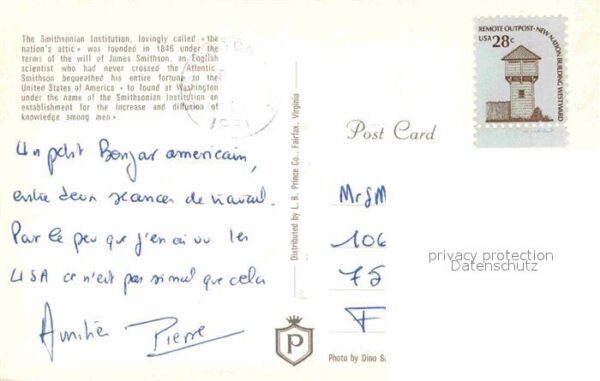 The Smithsonian Institution, lovingly called « the
nation's attic » was founded in 1846 under the
terms of the will of James Smithson, an English
scientist who had never crossed the Atlantic
Smithson bequeathed his entire fortune to the
United States of America « to found at Washington
under the name of the Smithsonian Institution an
establishment for the increase and diffusion of
knowledge among men ».
REMOTE OUTPOST·NEW NATION BUILDING WESTWARD
USA 28c
Post Card
Un petit Bonjour americain,
entre deux séances de travail.
Par le peu que j'en ai vu les
USA ce n'est pas si mal que cela
Amitiés Pierre
Distributed by L. B. Prince Co., Fairfax, Virginia
Mr&M
106
75
F
privacy protection
Datenschutz
P
Photo by Dino Sa